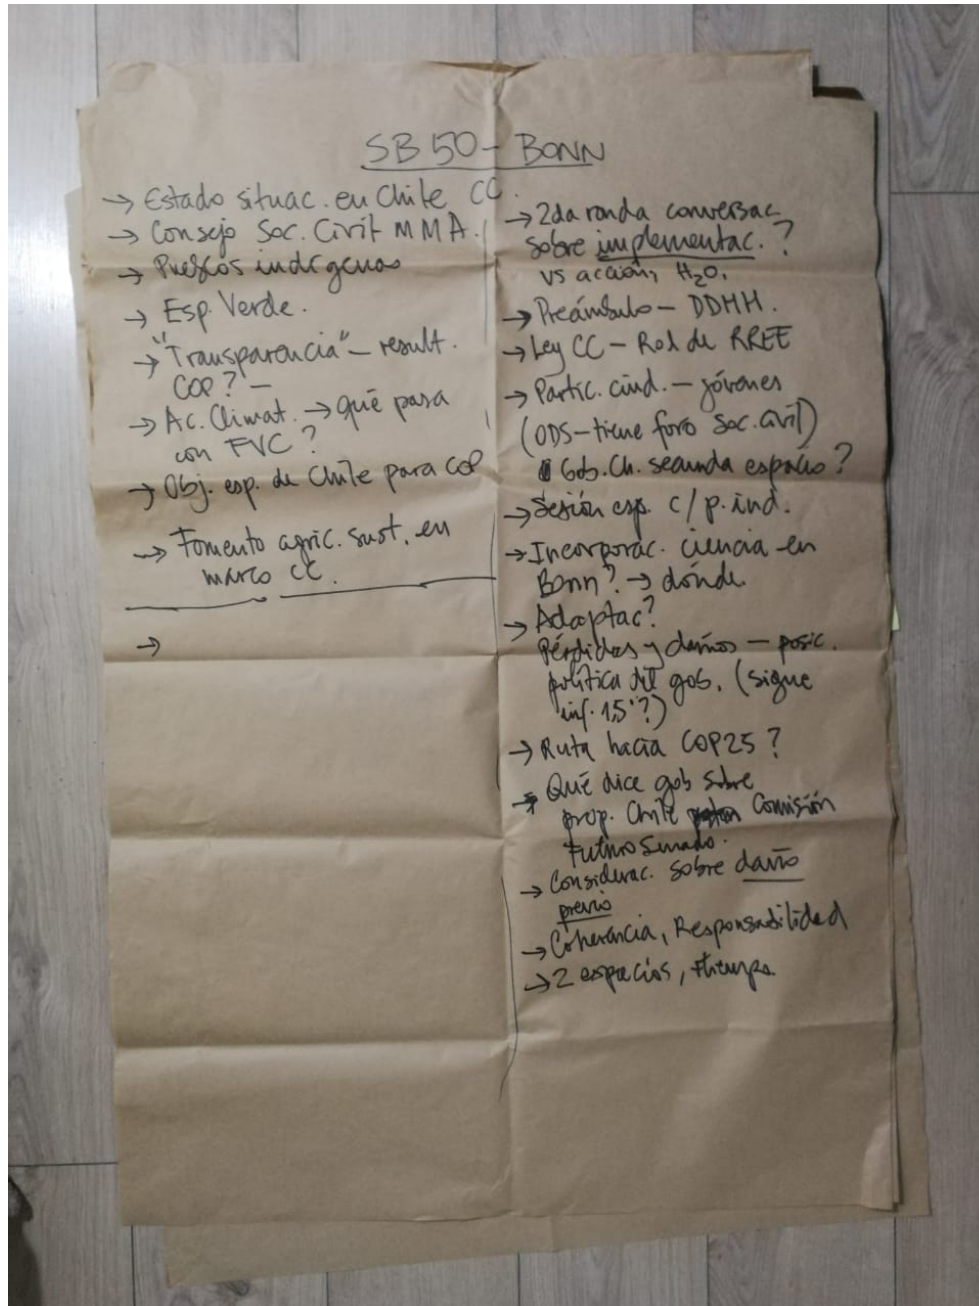 SB 50 - BONN
→ Estado situac. en Chile CC.
→ Consejo Soc. Civil MMA.
→ Pueblos indígenas
→ Esp. Verde.
→ "Transparencia" - result.
COP? -
→ Ac. Climat. → qué pasa
con FVC?
→ Obj. esp. de Chile para COP
→ Fomento agric. sust. en
marco CC.
→
→ 2da ronda conversac.
sobre implementac. ?
vs acción, H₂O.
→ Preámbulo - DDHH.
→ Ley CC - Rol de RREE
→ Partic. ciud. - jóvenes
(ODS - tiene foro Soc. civil)
Gob. Ch. segunda espacio?
→ Sesión esp. c/ p. ind.
→ Incorporac. ciencia en
Bonn? → dónde.
→ Adaptac?
Pérdidas y daños - posic.
política del gob. (sigue
inf. 1,5°?)
→ Ruta hacia COP25?
→ Qué dice gob sobre
prop. Chile Comisión
Futuro Senado.
→ Considerac. sobre daño
previo
→ Coherencia, Responsabilidad
→ 2 espacios,